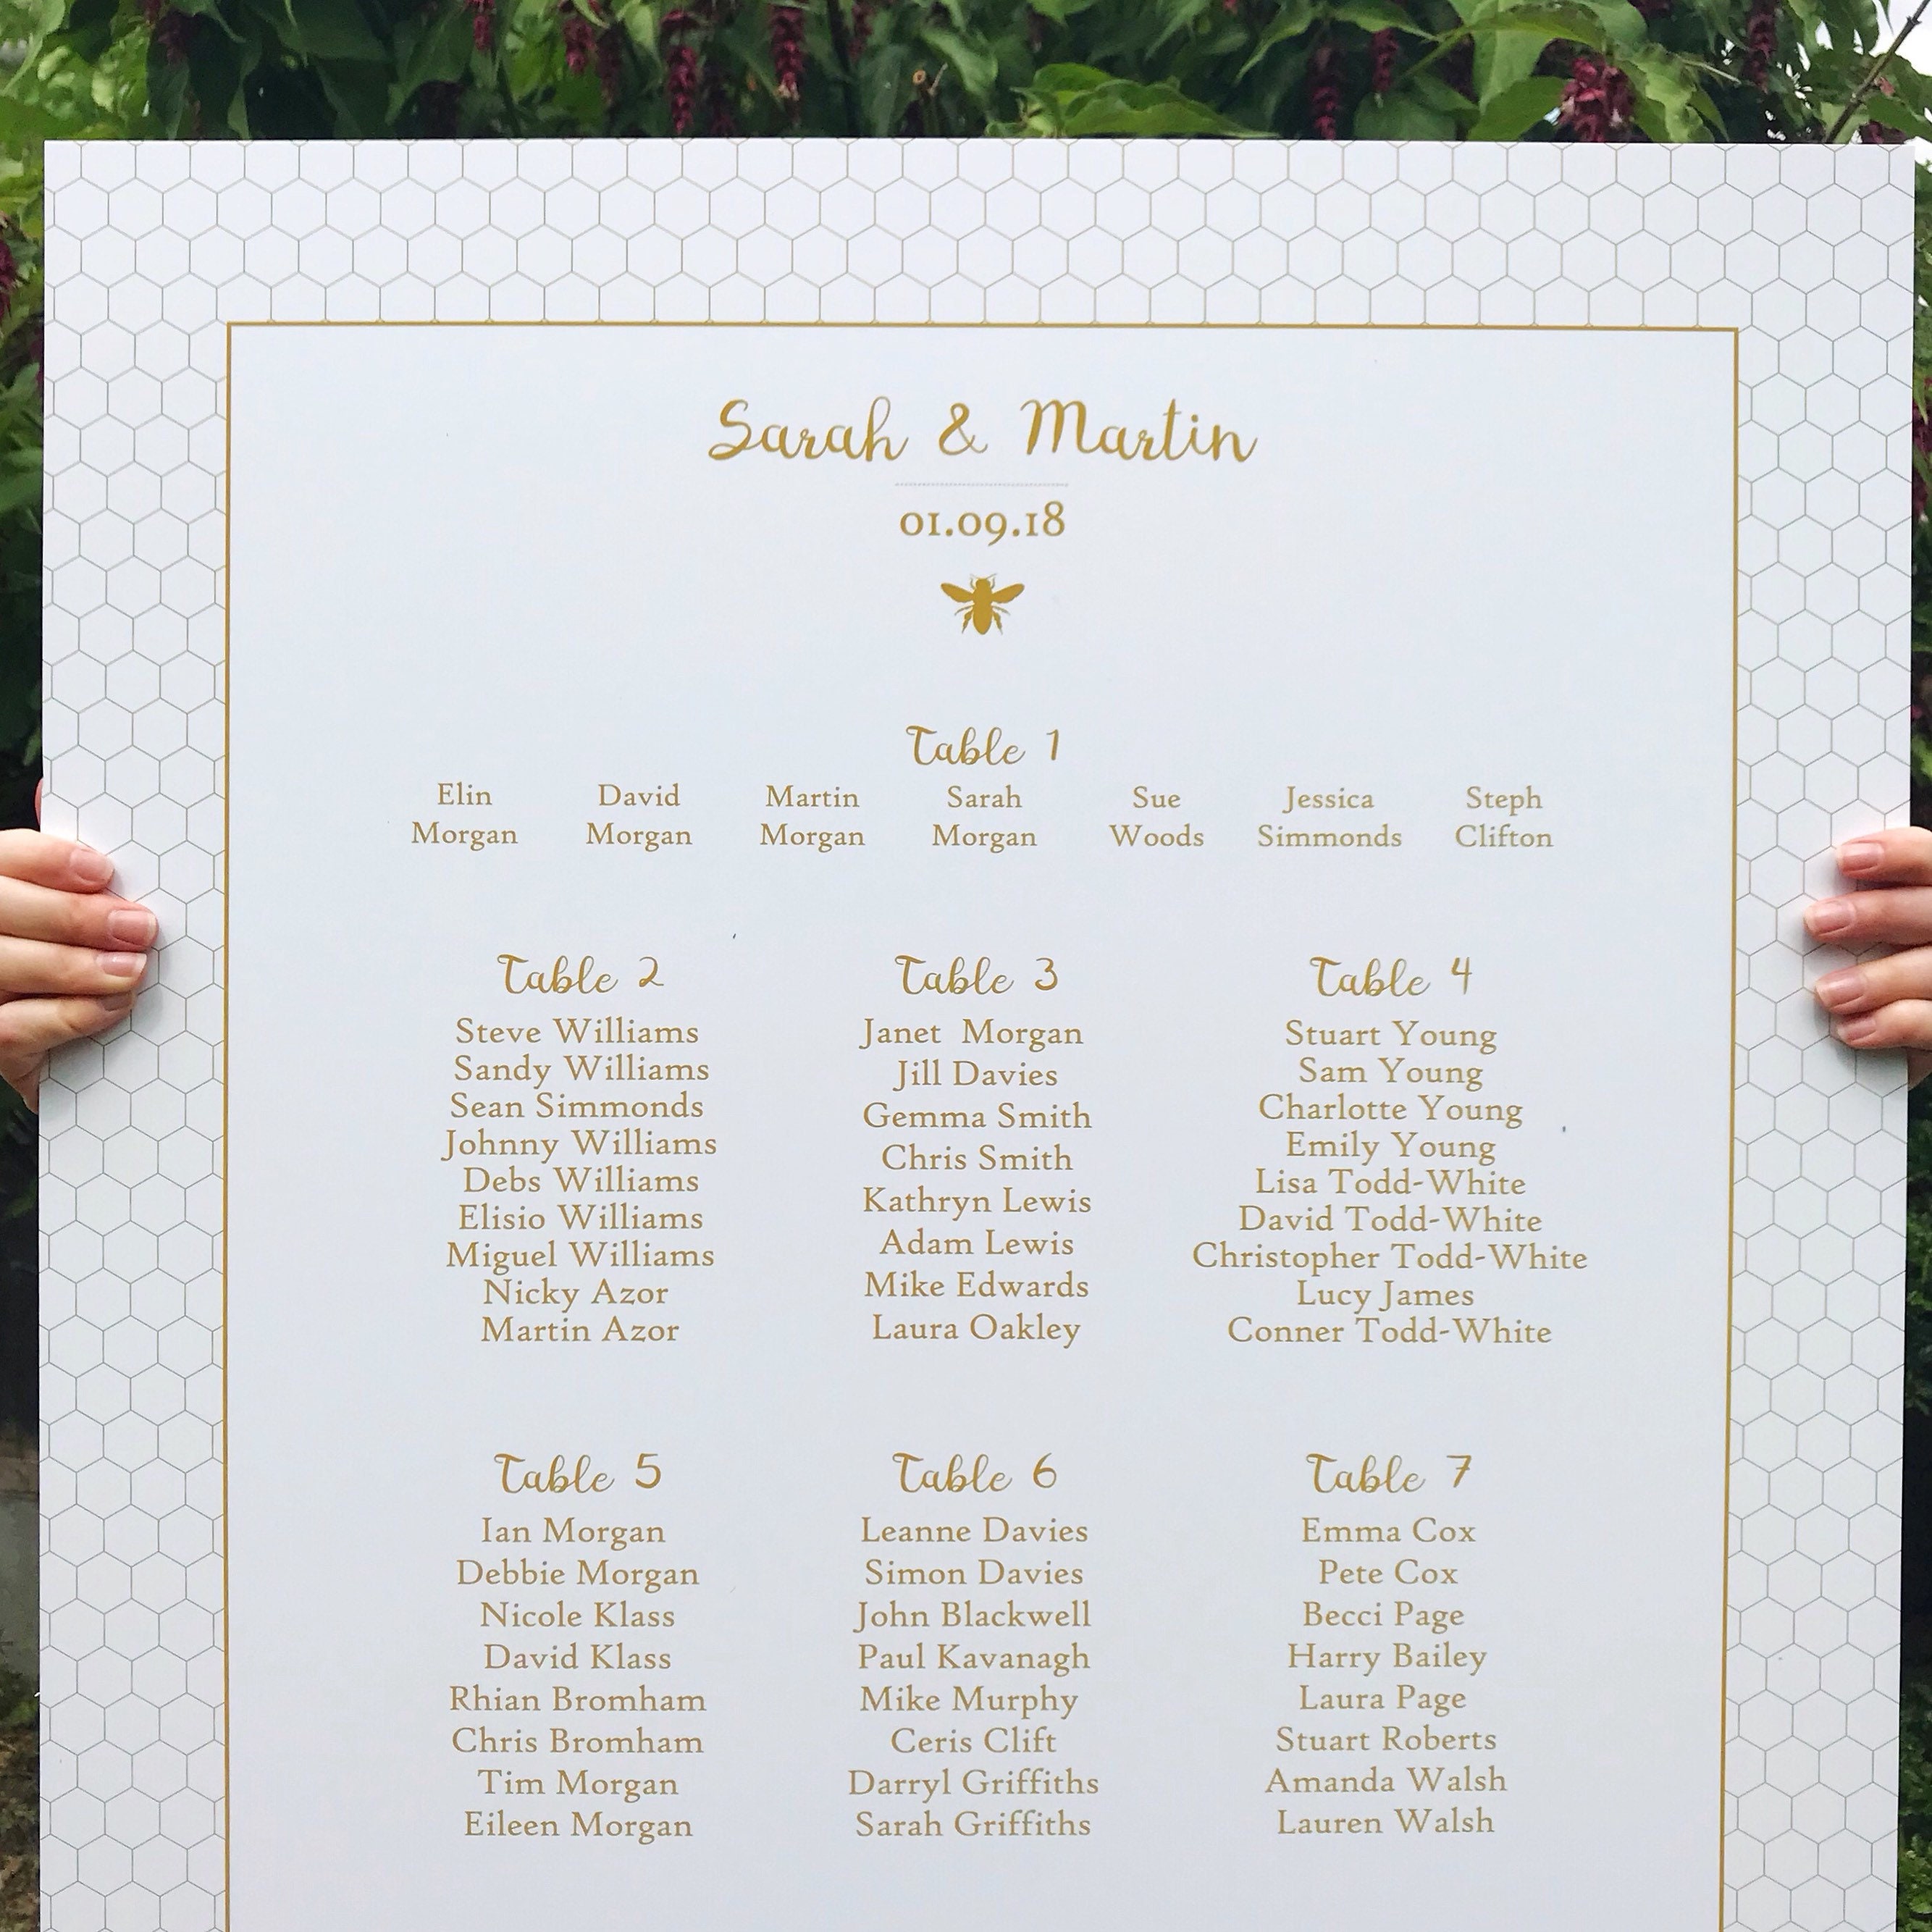 Sarah & Martin
01.09.18
Table 1
Elin Morgan
David Morgan
Martin Morgan
Sarah Morgan
Sue Woods
Jessica Simmonds
Steph Clifton
Table 2
Steve Williams
Sandy Williams
Sean Simmonds
Johnny Williams
Debs Williams
Elisio Williams
Miguel Williams
Nicky Azor
Martin Azor
Table 3
Janet Morgan
Jill Davies
Gemma Smith
Chris Smith
Kathryn Lewis
Adam Lewis
Mike Edwards
Laura Oakley
Table 4
Stuart Young
Sam Young
Charlotte Young
Emily Young
Lisa Todd-White
David Todd-White
Christopher Todd-White
Lucy James
Conner Todd-White
Table 5
Ian Morgan
Debbie Morgan
Nicole Klass
David Klass
Rhian Bromham
Chris Bromham
Tim Morgan
Eileen Morgan
Table 6
Leanne Davies
Simon Davies
John Blackwell
Paul Kavanagh
Mike Murphy
Ceris Clift
Darryl Griffiths
Sarah Griffiths
Table 7
Emma Cox
Pete Cox
Becci Page
Harry Bailey
Laura Page
Stuart Roberts
Amanda Walsh
Lauren Walsh